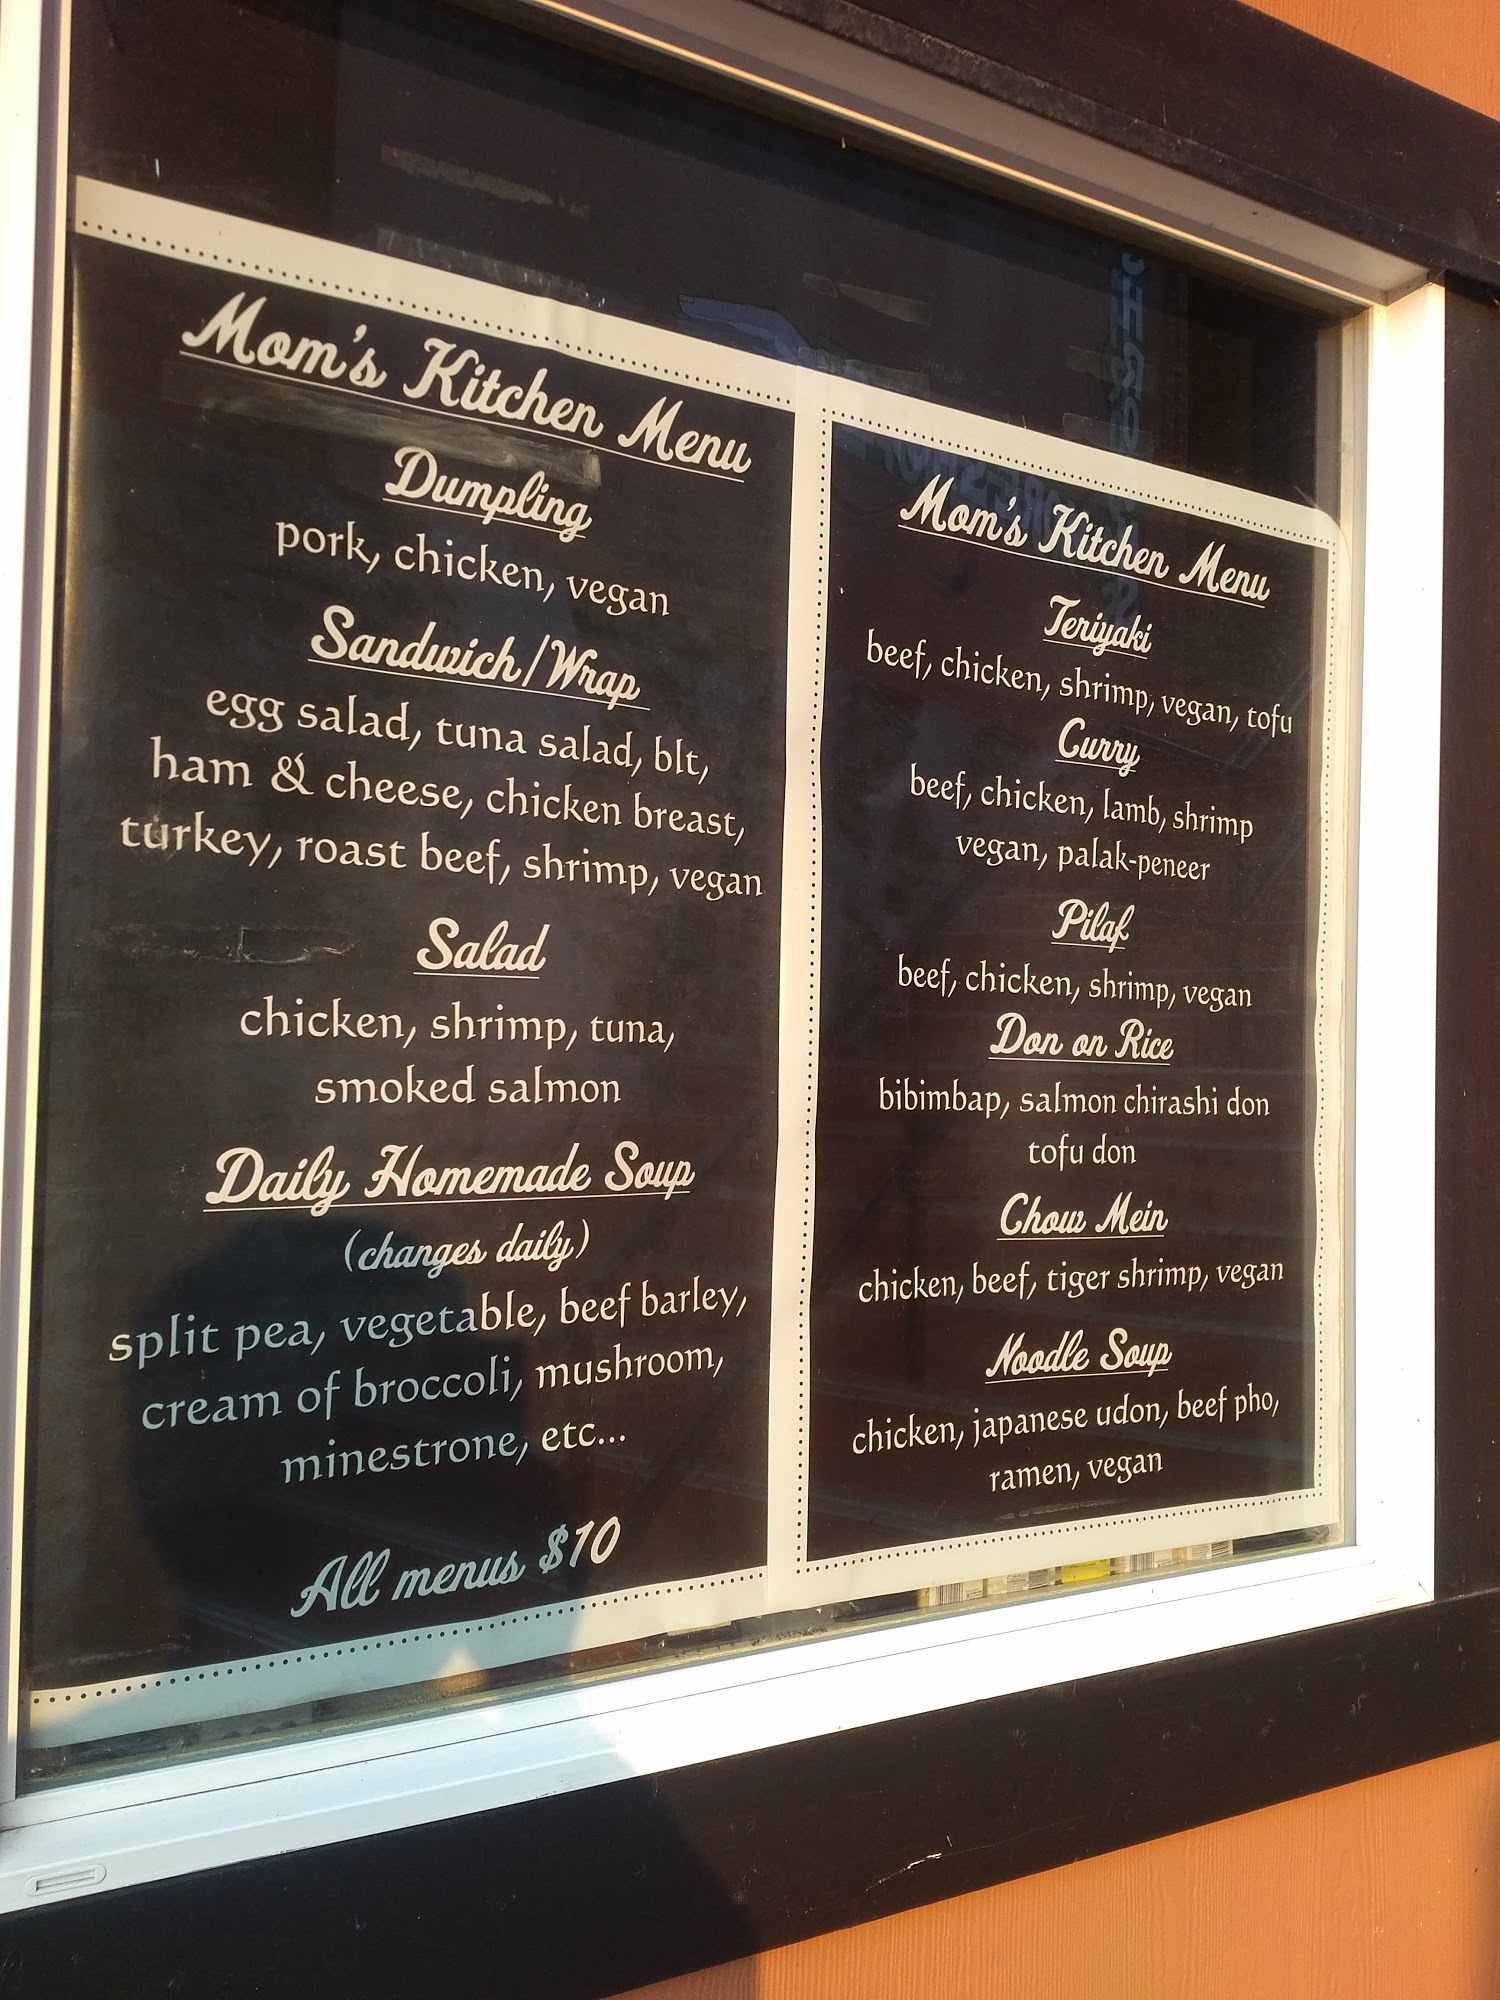 Mom's Kitchen Menu
Dumpling
pork, chicken, vegan
Sandwich/Wrap
egg salad, tuna salad, blt,
ham & cheese, chicken breast,
turkey, roast beef, shrimp, vegan
Salad
chicken, shrimp, tuna,
smoked salmon
Daily Homemade Soup
(changes daily)
split pea, vegetable, beef barley,
cream of broccoli, mushroom,
minestrone, etc...
All menus $10
Mom's Kitchen Menu
Teriyaki
beef, chicken, shrimp, vegan, tofu
Curry
beef, chicken, lamb, shrimp
vegan, palak-peneer
Pilaf
beef, chicken, shrimp, vegan
Don on Rice
bibimbap, salmon chirashi don
tofu don
Chow Mein
chicken, beef, tiger shrimp, vegan
Noodle Soup
chicken, japanese udon, beef pho,
ramen, vegan